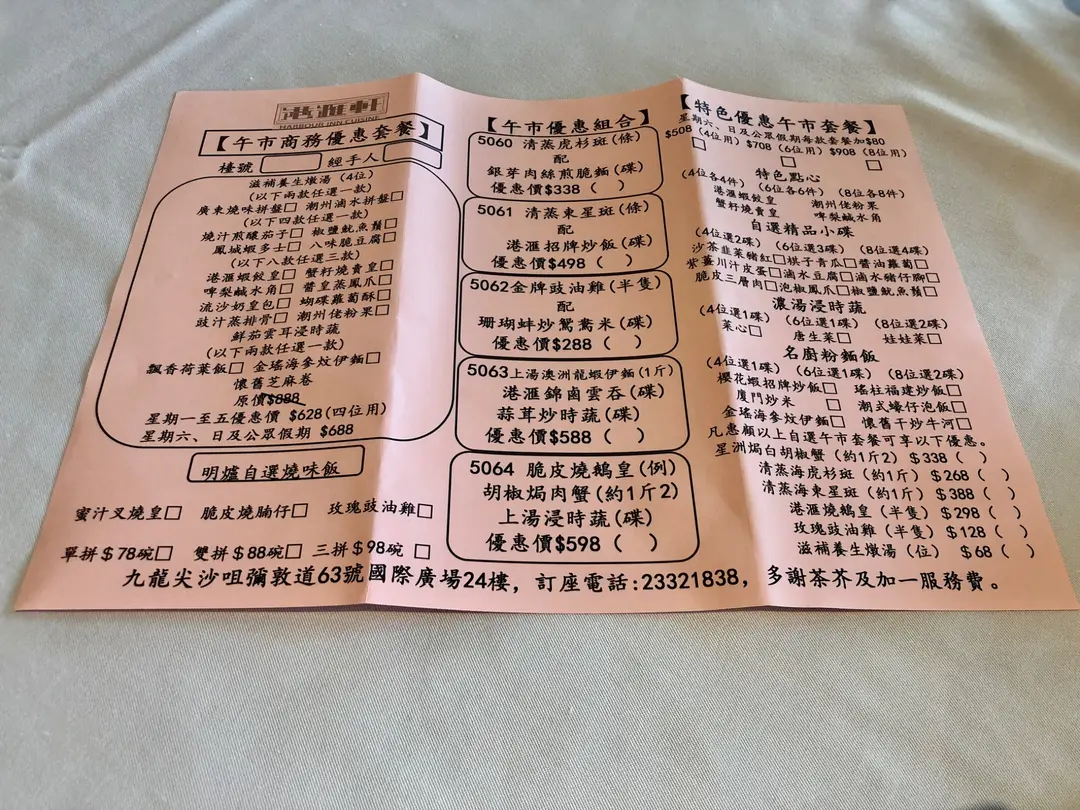 港滙軒
HARBOUR INN CUISINE
【午市商務優惠套餐】
檯號 經手人
滋補養生燉湯 (4位)
(以下兩款任選一款)
廣東燒味拼盤□ 潮州滷水拼盤□
(以下四款任選一款)
燒汁煎釀茄子□ 椒鹽魷魚鬚□
鳳城蝦多士□ 八味脆豆腐□
(以下八款任選三款)
港滙蝦餃皇□ 蟹籽燒賣皇□
啤梨鹹水角□ 醬皇蒸鳳爪□
流沙奶皇包□ 蝴蝶蘿蔔酥□
豉汁蒸排骨□ 潮州佬粉果□
鮮茄雲耳浸時蔬
(以下兩款任選一款)
飄香荷葉飯□ 金瑤海參炆伊麵□
懷舊芝麻卷
原價$888
星期一至五優惠價 $628(四位用)
星期六、日及公眾假期 $688
明爐自選燒味飯
蜜汁叉燒皇□ 脆皮燒腩仔□ 玫瑰豉油雞□
單拼$78碗□ 雙拼$88碗□ 三拼$98碗 □
【午市優惠組合】
5060 清蒸虎杉斑(條)
配
銀芽肉絲煎脆麵(碟)
優惠價$338 ( )
5061 清蒸東星斑(條)
配
港滙招牌炒飯(碟)
優惠價$498 ( )
5062金牌豉油雞(半隻)
配
珊瑚蚌炒鴛鴦米(碟)
優惠價$288 ( )
5063上湯澳洲龍蝦伊麵(1斤)
港滙錦鹵雲吞(碟)
蒜茸炒時蔬(碟)
優惠價$588 ( )
5064 脆皮燒鵝皇(例)
胡椒焗肉蟹(約1斤2)
上湯浸時蔬(碟)
優惠價$598 ( )
【特色優惠午市套餐】
星期六、日及公眾假期每款套餐加$80
$508(4位用) $708(6位用) $908(8位用)
□ □ □
特色點心
(4位各4件) (6位各6件) (8位各8件)
港滙蝦餃皇 潮州佬粉果
蟹籽燒賣皇 啤梨鹹水角
自選精品小碟
(4位選2碟) (6位選3碟) (8位選4碟)
沙茶韭菜豬紅□ 棋子青瓜□ 醬油蘿蔔□
紫薑川汁皮蛋□ 滷水豆腐□ 滷水豬仔腳□
脆皮三層肉□ 泡椒鳳爪□ 椒鹽魷魚鬚□
濃湯浸時蔬
(4位選1碟) (6位選1碟) (8位選2碟)
菜心□ 唐生菜□ 娃娃菜□
名廚粉麵飯
(4位選1碟) (6位選1碟) (8位選2碟)
櫻花蝦招牌炒飯□ 瑤柱福建炒飯□
廈門炒米 □ 潮式蠔仔泡飯□
金瑤海參炆伊麵□ 懷舊干炒牛河□
凡惠顧以上自選午市套餐可享以下優惠。
星洲焗白胡椒蟹 (約1斤2) $338 ( )
清蒸海虎杉斑 (約1斤) $268 ( )
清蒸海東星斑 (約1斤) $388 ( )
港滙燒鵝皇 (半隻) $298 ( )
玫瑰豉油雞 (半隻) $128 ( )
滋補養生燉湯 (位) $68 ( )
九龍尖沙咀彌敦道63號國際廣場24樓，訂座電話:23321838，多謝茶芥及加一服務費。